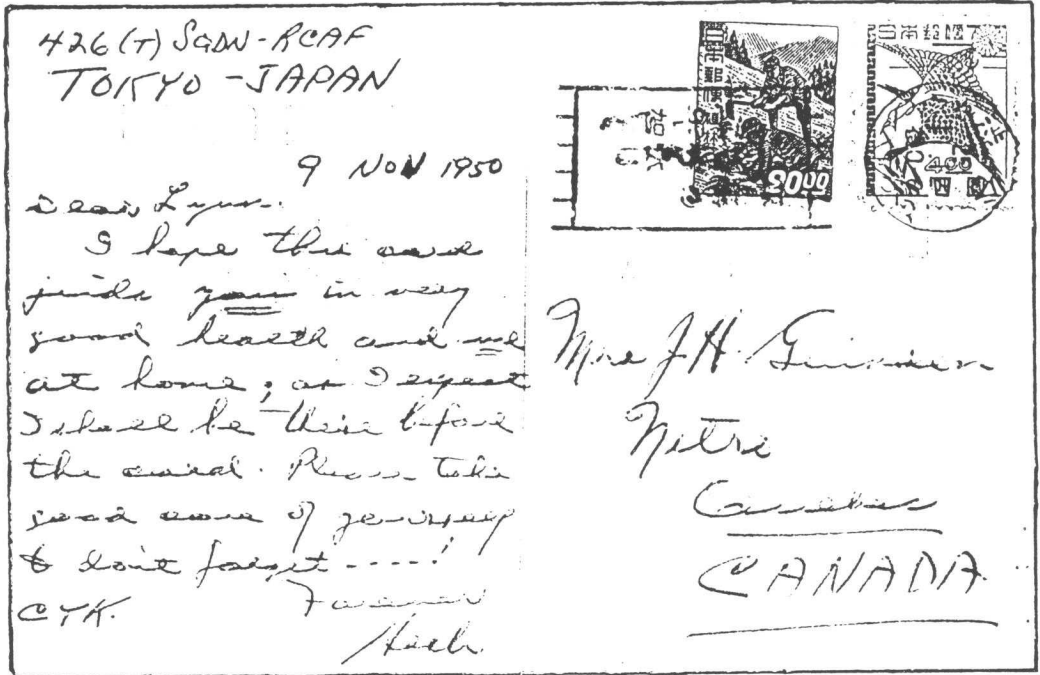 426(T) SQDN-RCAF
TOKYO-JAPAN
9 NOV 1950
Dear Lynn.
I hope this card
finds you in very
good health and me
at home; as I expect
I shall be there before
the card. Please take
good care of yourself
& don't forget -----!
CYK. Forever
Herb.
日本郵便
20.00
日本郵便
400
Mrs J H
Nitro
Quebec
CANADA